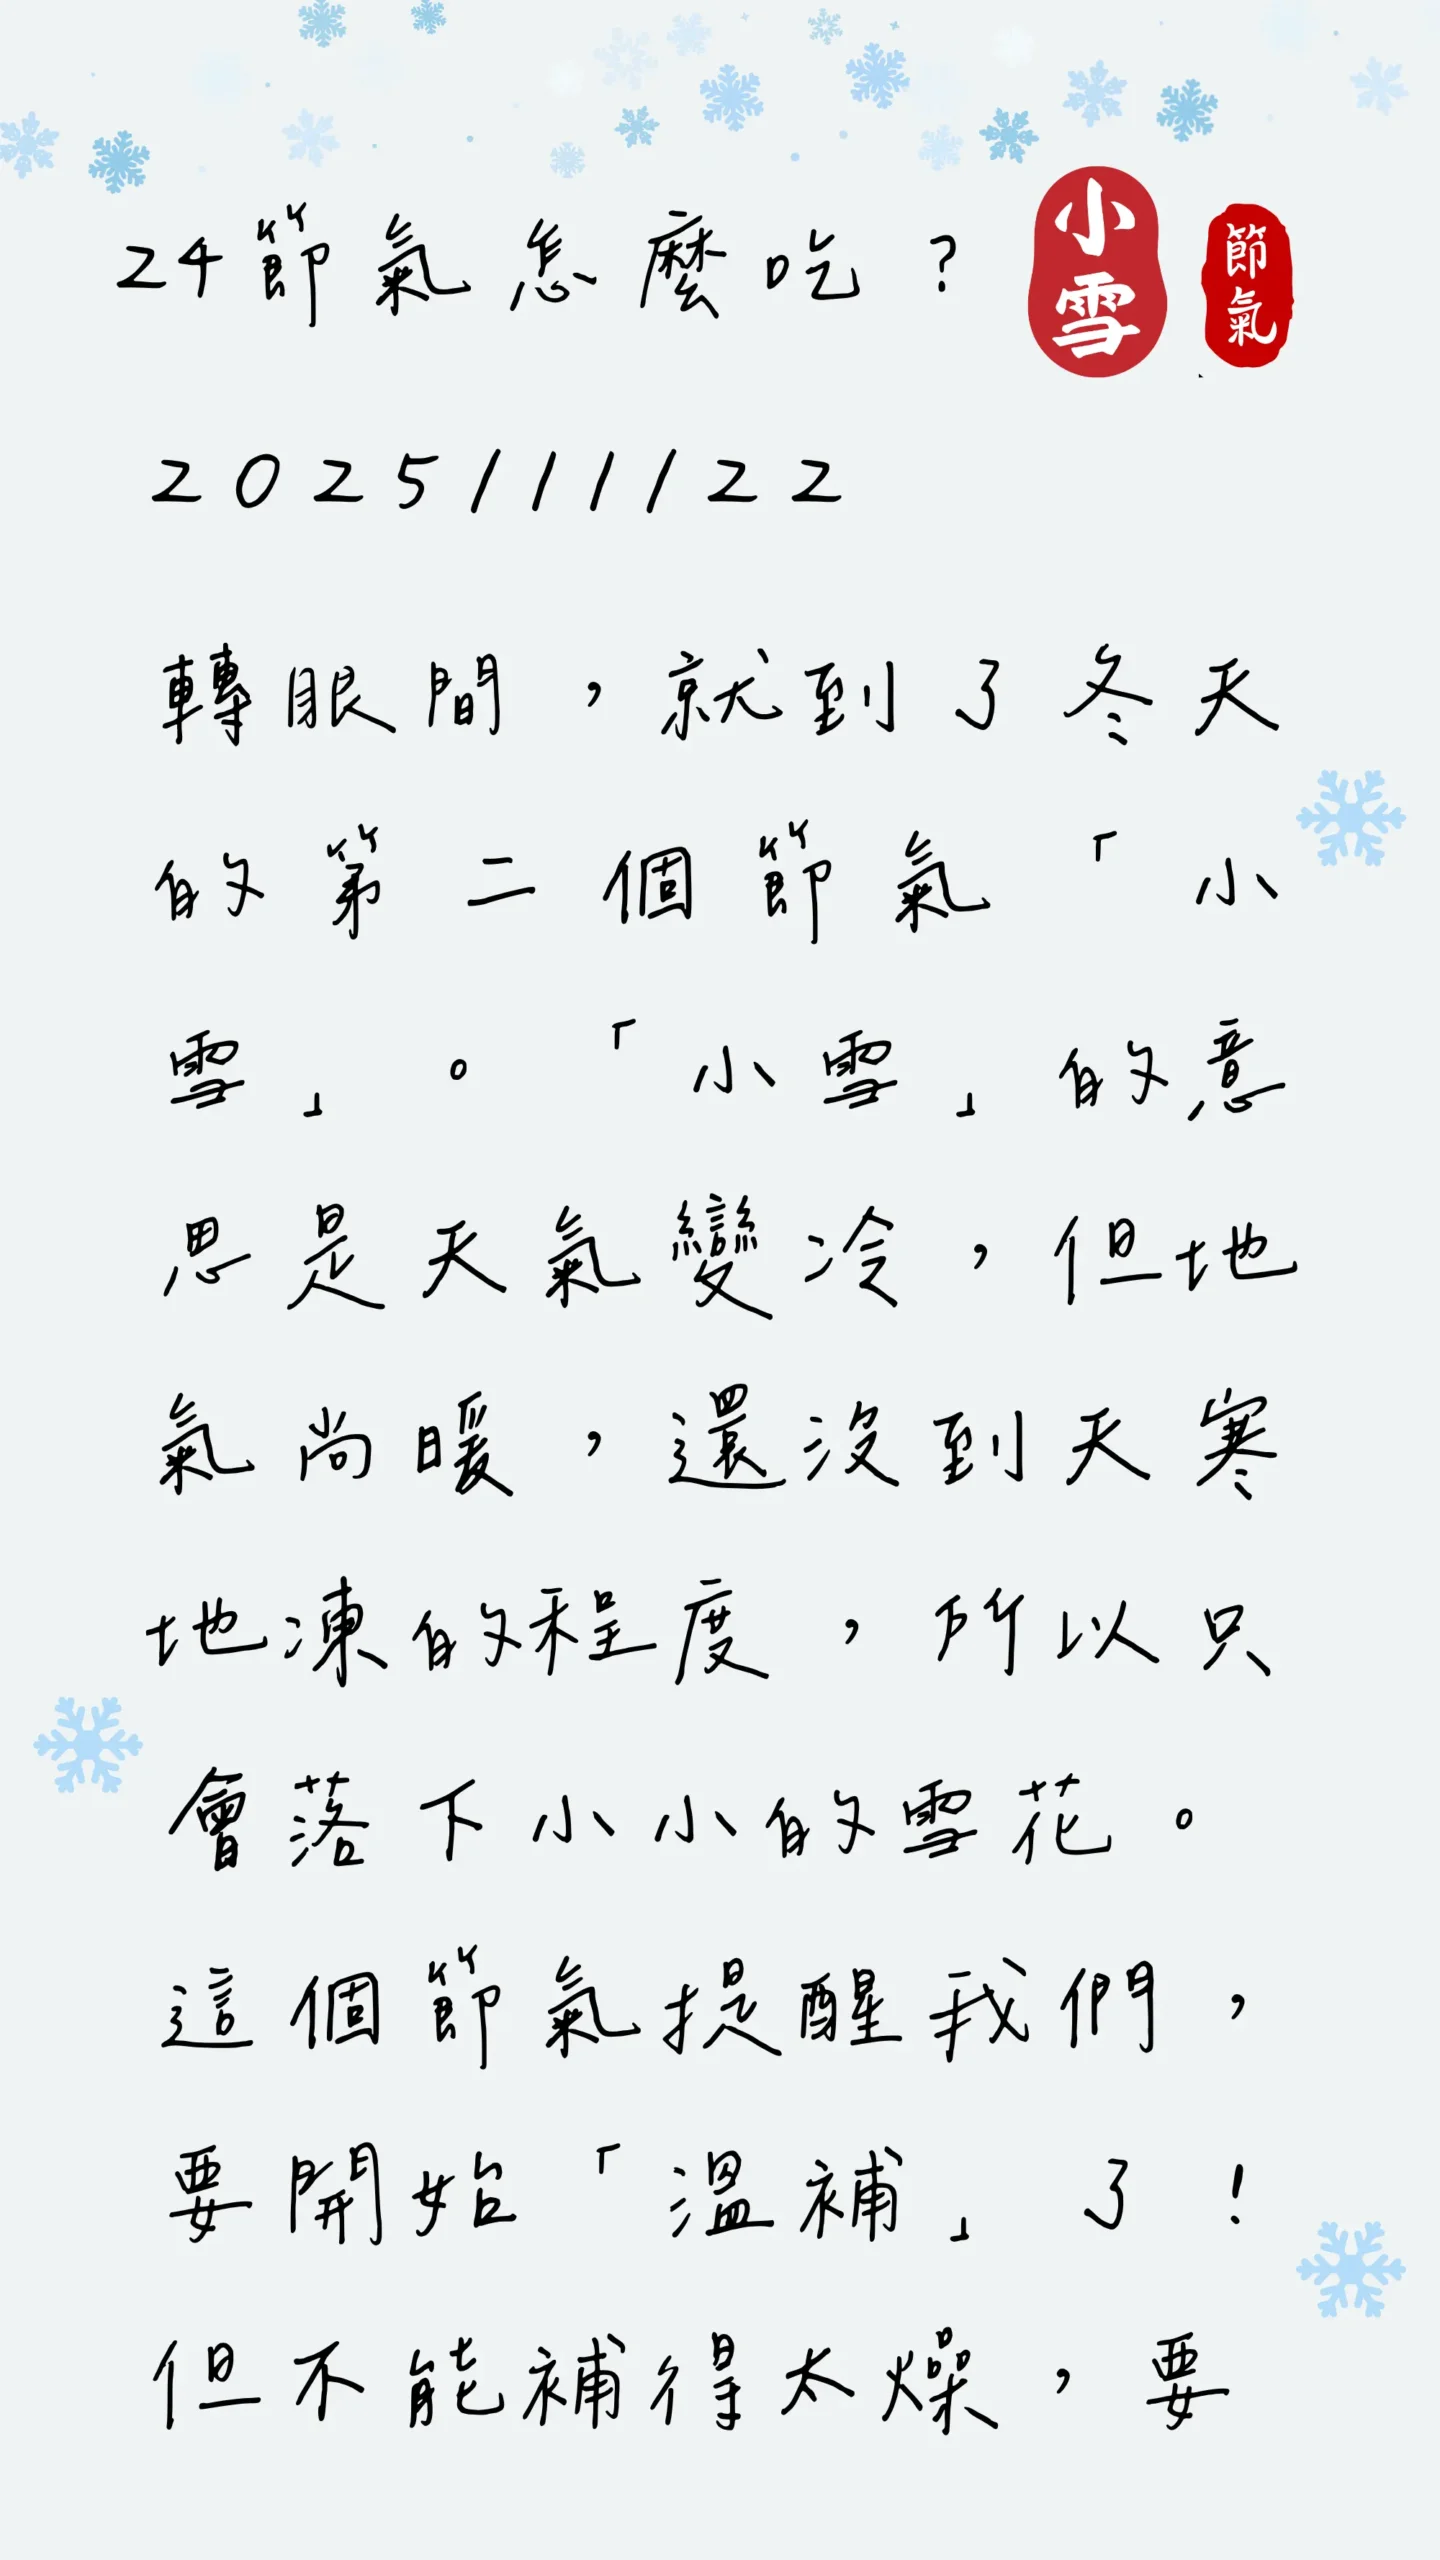 24節氣怎麼吃？
小雪
節氣
2025/11/22
轉眼間，就到了冬天
的第二個節氣「小
雪」。「小雪」的意
思是天氣變冷，但地
氣尚暖，還沒到天寒
地凍的程度，所以只
會落下小小的雪花。
這個節氣提醒我們，
要開始「溫補」了！
但不能補得太燥，要